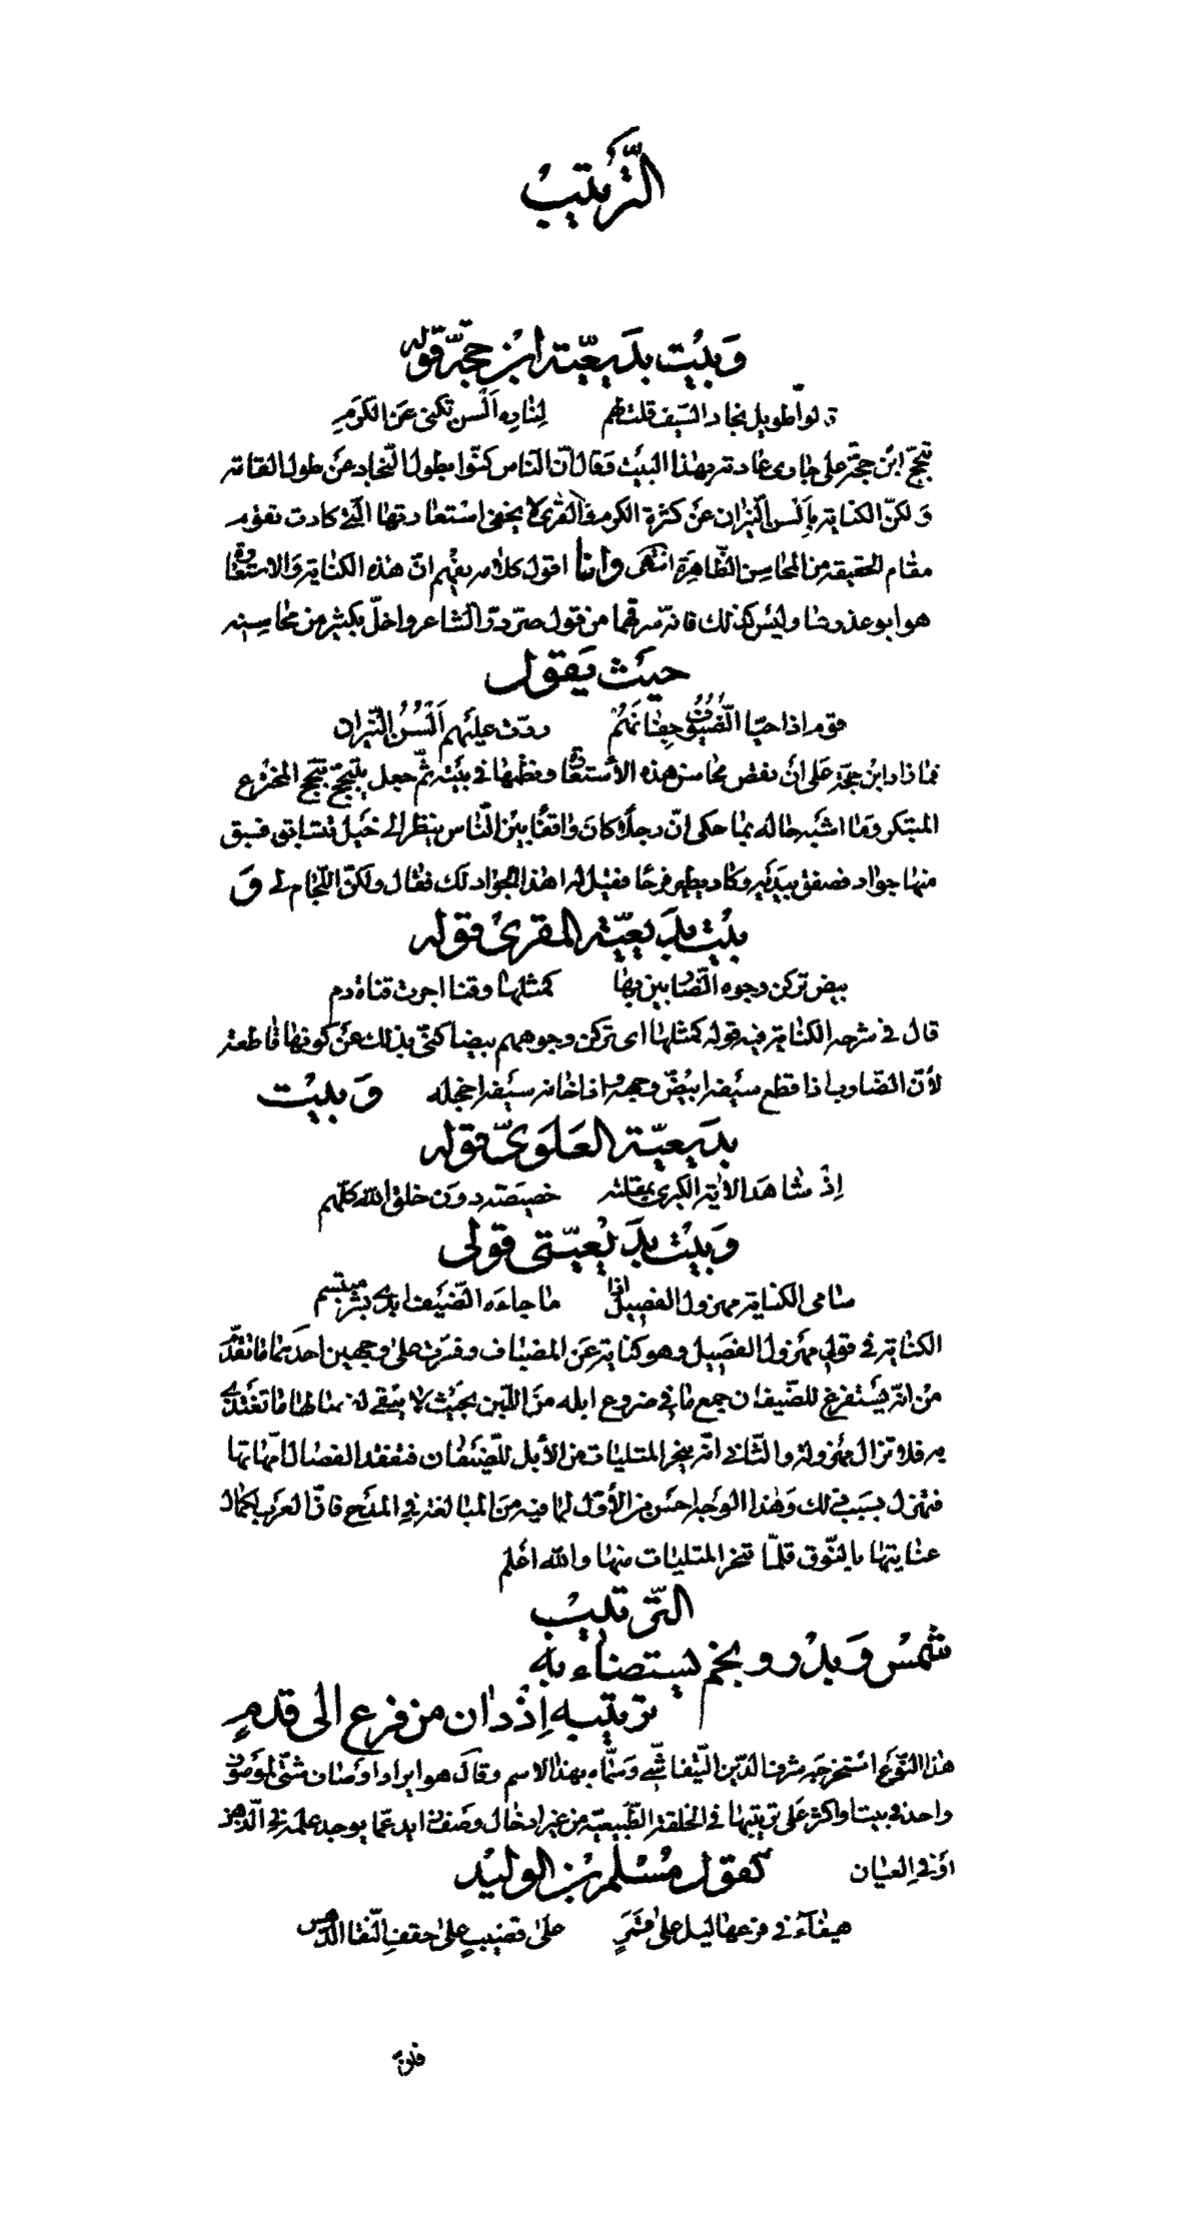 التَّرتيب
وَبيْت بدَيعيّة ابن حجّة قوله
قالوا طويل نجاد السّيف قلت لهم لناره اَلْسن تكنى عن الكرمِ
تبجّح ابن حجّة على جارى عادته بهٰذا البَيْت فقال انّ النّاس كنّوا بطول النّجاد عَن طول القامة
وَ لكنّ الكناية بِاَلْسن النّيران عن كثرة الكرم والقرى لا يخفى استعارتها الّتى كادت تقوم
مقام الحقيقة من المحاسن الظّاهرة انتهى وانا اقول كلامه يفهم انّ هٰذه الكناية وَالاستعارة
هو ابو عذرها وليْس كذٰلك فانّه سرقهما من قول صرّدرّ الشّاعر واخلّ بكثير من محاسِنه
حيْث يَقول
قوم اذا حيّا الضّيُوفُ جِفانَهُم ردّت عليْهم اَلْسُنُ النّيران
فما زاد ابْن حجّة عَلى اَنْ نقص محاسن هٰذه الأستعارة ونظمها فى بيْته ثمّ جعل يتبجّح تبجّح المخترع
المبتكر وَما اشبَه حاله بما حكى انّ رجلًا كانَ واقفًا بين النّاس ينظر الى خيل تتسابق فسبق
منها جواد فصفق بيدَيْه وَكاد يطير فرحًا فقيْل له اهٰذا الجواد لك فقال ولكنّ اللّجام لى وَ
بيْت بدَيعيّة المقرى قوله
بيض تركن وجوه الضّاربين بها كمثلها وقنا اجرت قناة دم
قال فى شرحه الكناية فيه قوله كمثلها اى تركن وجوههم بيضا كنّى بذلك عَن كونها قاطعة
لأنّ الضّارب اذا قطع سيْفه ابيضّ وجهه واذا خانه سيْفه اخجله وَبيْت
بدَيعيّة العَلَوىّ قوله
اِذْ شاهَد الاٰية الكبرى بمقلته خصيصته دون خلق اللّٰه كلّهم
وَبيْت بدَيْعيّتى قولى
سامى الكناية مهزول الفصيل اذا ما جاءَه الضّيْف ابدى بشر مبتسم
الكناية فى قولى مهزول الفصيل وهو كناية عَن المضياف وفسّرت على وجهين احدهما ما تقدّم
من انّه يَسْتفرغ للضّيفان جمع ما فى ضروع ابله من اللّبن بحيْث لا يبْقى لفصالها ما تغْتذى
به فلا تزال مهزولة والثّانى انّه ينحر المتليات من الأبل للضّيفان فتفقد الفصال امّهاتها
فتهزل بسبب ذٰلك وَهٰذا الوجه احسن من الأوّل لما فيه مِن المبالغة فى المدْح فانّ العرب لكمال
عنايتها بالنّوق قلّما تنحر المتليات منها واللّٰه اعلم
التّرتيْب
شمسٌ وَبدْر ونجم يستضاء به
ترتيبه اِذْ دان من فرع الى قدمٍ
هٰذا النّوْع اسْتخرجَه شرف الدّين التّيفاشىّ وَسمّاه بهٰذا الاسم وقال هو ايراد اوصاف شتّى لموْصوف
واحد فى بيت او اكثر عَلى ترتيبها فى الخلقة الطّبيعيّة من غير ادخال وصف زايد عمّا يوجد علمه فى الذّهن
اوْ فى العيان
كَقول مُسْلم بن الوليْد
هيفآءُ فى فرعها ليل على قمَرٍ على قضيبٍ على حقف النّقا الدّهس